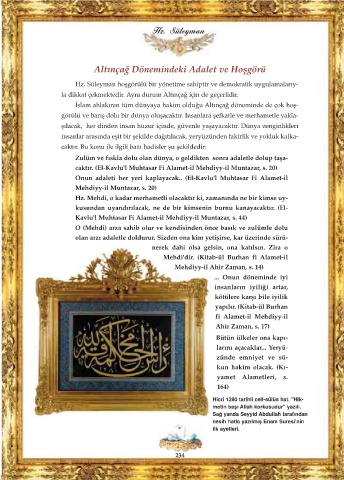 Hz. Süleyman
Altınçağ Dönemindeki Adalet ve Hoşgörü
Hz. Süleyman hoşgörülü bir yönetime sahiptir ve demokratik uygulamalarıy-
la dikkat çekmektedir. Aynı durum Altınçağ için de geçerlidir.
İslam ahlakının tüm dünyaya hakim olduğu Altınçağ döneminde de çok hoş-
görülü ve barış dolu bir dünya oluşacaktır. İnsanlara şefkatle ve merhametle yakla-
şılacak, her dinden insan huzur içinde, güvenle yaşayacaktır. Dünya zenginlikleri
insanlar arasında eşit bir şekilde dağıtılacak, yeryüzünden fakirlik ve yokluk kalka-
caktır. Bu konu ile ilgili bazı hadisler şu şekildedir:
Zulüm ve fıskla dolu olan dünya, o geldikten sonra adaletle dolup taşa-
caktır. (El-Kavlu'l Muhtasar Fi Alamet-il Mehdiyy-il Muntazar, s. 20)
Onun adaleti her yeri kaplayacak.. (El-Kavlu'l Muhtasar Fi Alamet-il
Mehdiyy-il Muntazar, s. 20)
Hz. Mehdi, o kadar merhametli olacaktır ki, zamanında ne bir kimse uy-
kusundan uyandırılacak, ne de bir kimsenin burnu kanayacaktır. (El-
Kavlu'l Muhtasar Fi Alamet-il Mehdiyy-il Muntazar, s. 44)
O (Mehdi) arza sahib olur ve kendisinden önce basık ve zulümle dolu
olan arzı adaletle doldurur. Sizden ona kim yetişirse, kar üzerinde sürü-
nerek dahi olsa gelsin, ona katılsın. Zira o
Mehdi'dir. (Kitab-ül Burhan fi Alamet-il
Mehdiyy-il Ahir Zaman, s. 14)
... Onun döneminde iyi
insanların iyiliği artar,
kötülere karşı bile iyilik
yapılır. (Kitab-ül Burhan
fi Alamet-il Mehdiyy-il
Ahir Zaman, s. 17)
Bütün ülkeler ona kapı-
larını açacaklar... Yeryü-
zünde emniyet ve sü-
kun hakim olacak. (Kı-
yamet Alametleri, s.
164)
Hicri 1280 tarihli celi-sülüs hat. "Hik-
metin başı Allah korkusudur" yazılı.
Sağ yanda Seyyid Abdullah tarafından
nesih hatla yazılmış Enam Suresi'nin
ilk ayetleri.
رأس الحكمة مخافة الله
234